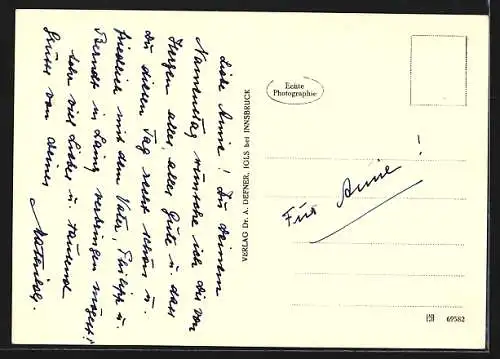 Liebe Annie! Zu Deinem
Namenstag wünsche ich Dir von
Herzen alles, alles Gute u. dass
Du diesen Tag recht schön u.
friedlich mit dem Vater, Philipp u.
Berndt in Laing verbringen mögest!
sehr viel Liebes u. tausend
Grüsse von Deiner
VERLAG Dr. A. DEFNER, IGLS bei INNSBRUCK
Echte
Photographie
Für Annie!
69582